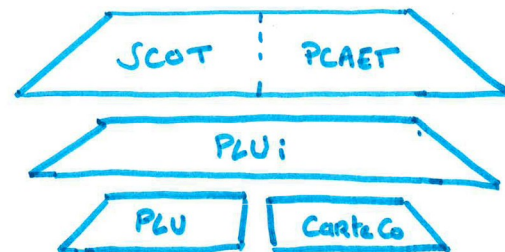 SCOT PCAET
PLUi
PLU Carte Co